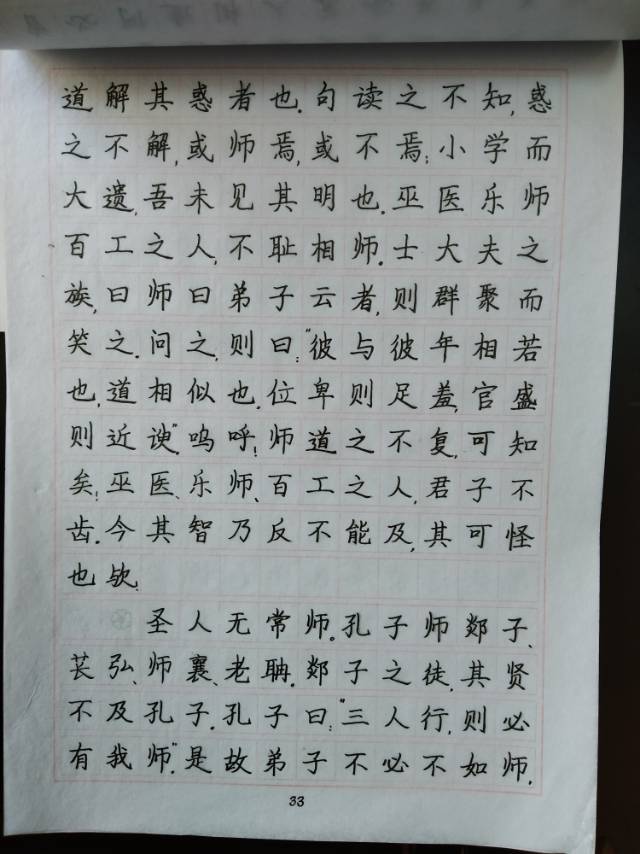 道解其惑者也.句读之不知,惑
之不解,或师焉,或不焉;小学而
大遗,吾未见其明也.巫医乐师
百工之人,不耻相师.士大夫之
族,曰师曰弟子云者,则群聚而
笑之.问之,则曰:“彼与彼年相若
也,道相似也.位卑则足羞,官盛
则近谀”呜呼!师道之不复,可知
矣!巫医、乐师、百工之人,君子不
齿.今其智乃反不能及,其可怪
也欤.
圣人无常师.孔子师郯子、
苌弘、师襄、老聃.郯子之徒,其贤
不及孔子.孔子曰:“三人行,则必
有我师.”是故弟子不必不如师,
33